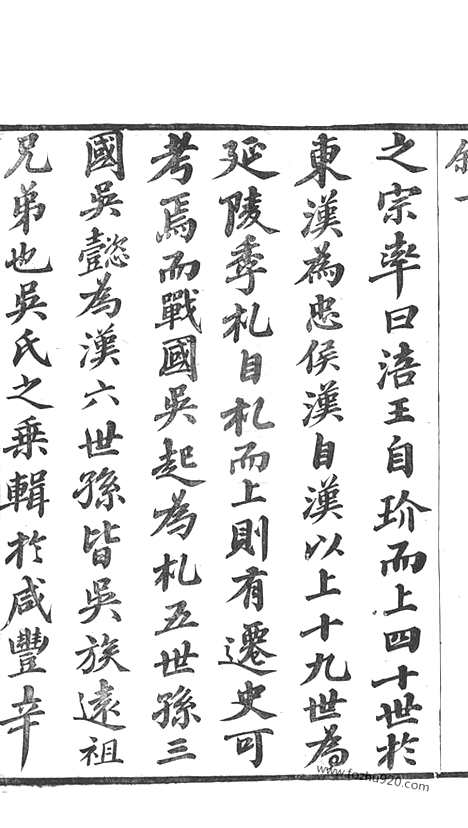 之宗率曰浯王自玠而上四十世於
東漢為忠侯漢自漢以上十九世為
延陵季札自札而上則有遷史可
考焉而戰國吳起為札五世孫三
國吳懿為漢六世孫皆吳族遠祖
兄弟也吳氏之乗輯於咸豐辛
www.fozhu920.com